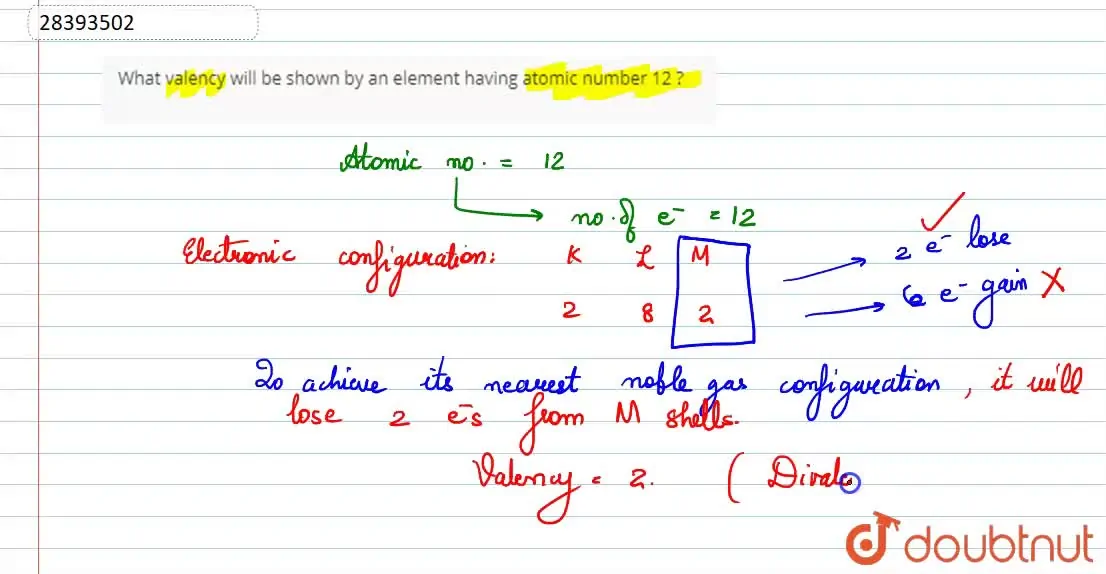 28393502
What valency will be shown by an element having atomic number 12 ?
Atomic no. = 12
no. of e⁻ = 12
Electronic configuration: K L M
2 8 2
2 e⁻ lose
6 e⁻ gain X
To achieve its nearest noble gas configuration, it will
lose 2 e⁻s from M shells.
Valency = 2. ( Divale
doubtnut